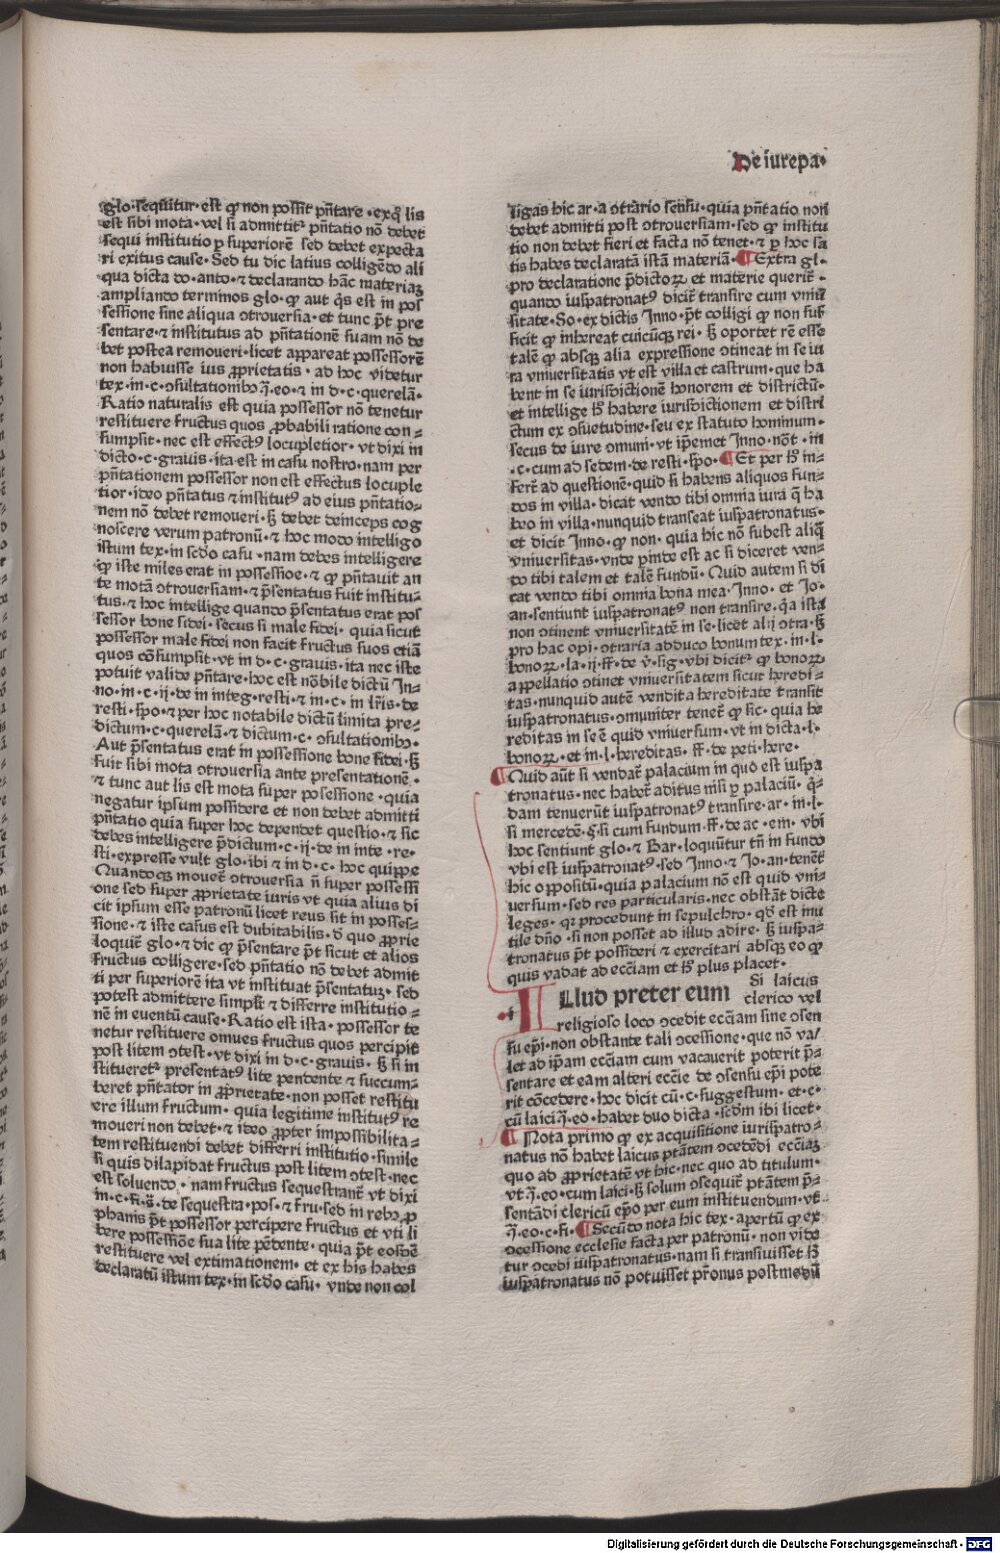 De iurepa·
glo·sequitur·est ꝙ non possit pñtare·exq̃ lis
est sibi mota·vel si admittit᷑ pñtatio nõ debet
sequi institutio ꝑ superiorẽ sed debet expecta
ri exitus cause·Sed tu dic latius colligẽdo ali
qua dicta do·anto·⁊ declarando hãc materiaꝫ
ampliando terminos glo·ꝙ aut q̇s est in pos
sessione sine aliqua ↄtrouersia·et tunc põt pre
sentare·⁊ institutus ad pñtationẽ suam nõ de
bet postea remoueri·licet appareat possessorẽ
non habuisse ius ꝓprietatis·ad hoc videtur
tex·in·c·ↄsultationibꝰ j̃·eo·⁊ in d·c·querelã·
Ratio naturalis est quia possessor nõ tenetur
restituere fructus quos ꝓbabili ratione con⸗
sumpsit·nec est effectꝰ locupletior·vt dixi in
dicto·c·grauis·ita·est in casu nostro·nam per
pñtationem possessor non est effectus locuple
tior·ideo pñtatus ⁊ institutꝰ ad eius pñtatio⸗
nem nõ debet remoueri·ꝫ debet deinceps cog
noscere verum patronũ·⁊ hoc modo intelligo
istum tex·in scd̃o casu·nam debes intelligere
ꝙ iste miles erat in possessioe·⁊ ꝙ pñtauit an
te motã ↄtrouersiam·⁊ p̃sentatus fuit institu⸗
tus·⁊ hoc intellige quando p̃sentatus erat pos
sessor bone fidei·secus si male fidei·quia sicut
possessor male fidei non facit fructus suos etiã
quos cõsumpsit·vt in d·c·grauis·ita nec iste
potuit valide pñtare·hoc est nõbile dictũ In⸗
no·in·c·ij·de in integ·resti·⁊ in·c·in lr̃is·de
resti·spo·⁊ per hoc notabile dictũ limita pre⸗
dictum·c·querelã·⁊ dictum·c·ↄsultationibꝰ·
Aut p̃sentatus erat in possessione bone fidei·ꝫ
fuit sibi mota ↄtrouersia ante presentationẽ·
⁊ tunc aut lis est mota super possessione·quia
negatur ipsum possidere et non debet admitti
pñtatio quia super hoc dependet questio·⁊ sic
debes intelligere p̃dictum·c·ij·de in inte·re⸗
sti·expresse vult glo·ibi ⁊ in d·c·hoc quippe
Quandocꝫ mouet᷑ ↄtrouersia ñ super possessi
one sed super ꝓprietate iuris vt quia alius di
cit ipsum esse patronũ licet reus sit in posses⸗
sione·⁊ iste casus est dubitabilis·d̃ quo ꝓprie
loquit᷑ glo·⁊ dic ꝙ p̃sentare põt sicut et alios
fructus colligere·sed pñtatio nõ debet admit
ti per superiorẽ ita vt instituat p̃sentatuꝫ·sed
potest admittere simpl̃r ⁊ differre institutio⸗
nẽ in euentũ cause·Ratio est ista·possessor te
netur restituere omnes fructus quos percipit
post litem ↄtest·vt dixi in d·c·grauis·ꝫ si in
stitueret᷑ presentatꝰ lite pendente ⁊ succum⸗
beret pñtator in ꝓprietate·non posset restitu
ere illum fructum·quia legitime institutꝰ re
moueri non debet·⁊ ideo ꝓpter impossibilita⸗
tem restituendi debet differri institutio·simile
si quis dilapidat fructus post litem ↄtest·nec
est soluendo·nam fructus sequestrant᷑ vt dixi
in·c·fi·s̃·de sequestra·pos·⁊ fru·sed in rebꝰ ꝓ
phanis põt possessor percipere fructus et vti li
bere possessiõe sua lite pẽdente·quia põt eosdẽ
restituere vel extimationem·et ex his habes
declaratũ istum tex·in scd̃o casu·vnde non col
ligas hic ar·a ↄtrario sensu·quia pñtatio non
debet admitti post ↄtrouersiam·sed ꝙ institu
tio non debet fieri et facta nõ tenet·⁊ ꝑ hoc sa
tis habes declaratã istã materiã·¶ Extra gl·
pro declaratione p̃dictoꝝ et materie querit᷑·
quando iuspatronatꝰ dicit᷑ transire cum vniu᷑
sitate·So·ex dictis Inno·põt colligi ꝙ non suf
ficit ꝙ inhereat cuicũqꝫ rei·ꝫ oportet rẽ esse
talẽ ꝙ absqꝫ alia expressione ↄtineat in se iu
ra vniuersitatis vt est villa et castrum·que ha
bent in se iurisdictionẽ honorem et districtũ·
et intellige hꝫ habere iurisdictionem et distri
ctum ex ↄsuetudine·seu ex statuto hominum·
secus de iure ↄmuni·vt ip̃emet Inno·nõt·in
·c·cum ad sedem·de resti·spo·¶ Et per hꝫ in⸗
fert᷑ ad questionẽ·quid si habens aliquos fun⸗
dos in villa·dicat vendo tibi omnia iura q̃ ha
beo in villa·nunquid transeat iuspatronatus·
et dicit Inno·ꝙ non·quia hic nõ subest aliq̃
vniuersitas·vnde ꝑinde est ac si diceret ven⸗
do tibi talem et talẽ fundũ·Quid autem si di
cat vendo tibi omnia bona mea·Inno·et Jo·
an·sentiunt iuspatronatꝰ non transire·q̃a ista
non ↄtinent vniuersitatẽ in se·licet alij ↄtra·ꝫ
pro hac opi·ↄtraria adduco bonum tex·in·l·
bonoꝝ·la·ij·ff·de v̑·sig·vbi dicit᷑ ꝙ bonoꝝ
appellatio ↄtinet vniuersitatem sicut heredi⸗
tas·nunquid autẽ vendita hereditate transit
iuspatronatus·ↄmuniter tenet᷑ ꝙ sic·quia he
reditas in se ẽ quid vniuersum·vt in dicta·l·
bonoꝝ·et in·l·hereditas·ff·de peti·here·
¶ Quid aũt si vendat᷑ palacium in quo est iuspa
tronatus·nec habet᷑ aditus nisi ꝑ palaciũ·q̃⸗
dam tenuerũt iuspatronatꝰ transire·ar·in·l·
si mercedẽ·§·si cum fundum·ff·de ac·em·vbi
hoc sentiunt glo·⁊ Bar·loquũtur tñ in fundo
vbi est iuspatronatꝰ·sed Inno·⁊ Jo·an·tenẽt
hic oppositũ·quia palacium nõ est quid vni⸗
uersum·sed res particularis·nec obstãt dicte
leges·qꝛ procedunt in sepulchro·qd̃ est inu
tile dño·si non posset ad illud adire·ꝫ iuspa⸗
tronatus põt possideri ⁊ exercitari absqꝫ eo ꝙ
quis vadat ad eccl̃iam et hꝫ plus placet·
Illud preter eum Si laicus
clerico vel
religioso loco ↄcedit eccl̃iam sine ↄsen
su ep̃i·non obstante tali ↄcessione·que nõ va/
let ad ip̃am eccl̃iam cum vacauerit poterit p̃⸗
sentare et eam alteri eccl̃ie de ↄsensu ep̃i pote
rit cõcedere·hoc dicit cũ·c·suggestum·et·c·
cũ laici j̃·eo·habet duo dicta·scd̃m ibi licet·
¶ Nota primo ꝙ ex acquisitione iurispatro⸗
natus nõ habet laicus ptãtem ↄcedẽdi eccl̃iaꝫ
quo ad ꝓprietatẽ vt hic·nec quo ad titulum·
vt j̃·eo·cum laici·ꝫ solum ↄsequit᷑ ptãtem p̃⸗
sentãdi clericũ ep̃o per eum instituendum·vt·
j̃·eo·c·fi·¶ Secũdo nota hic tex·apertũ ꝙ ex
ↄcessione ecclesie facta per patronũ·non vide
tur ↄcedi iuspatronatus·nam si transiuisset hꝫ
iuspatronatus nõ potuisset pr̃onus postmodũ
Digitalisierung gefördert durch die Deutsche Forschungsgemeinschaft - DFG